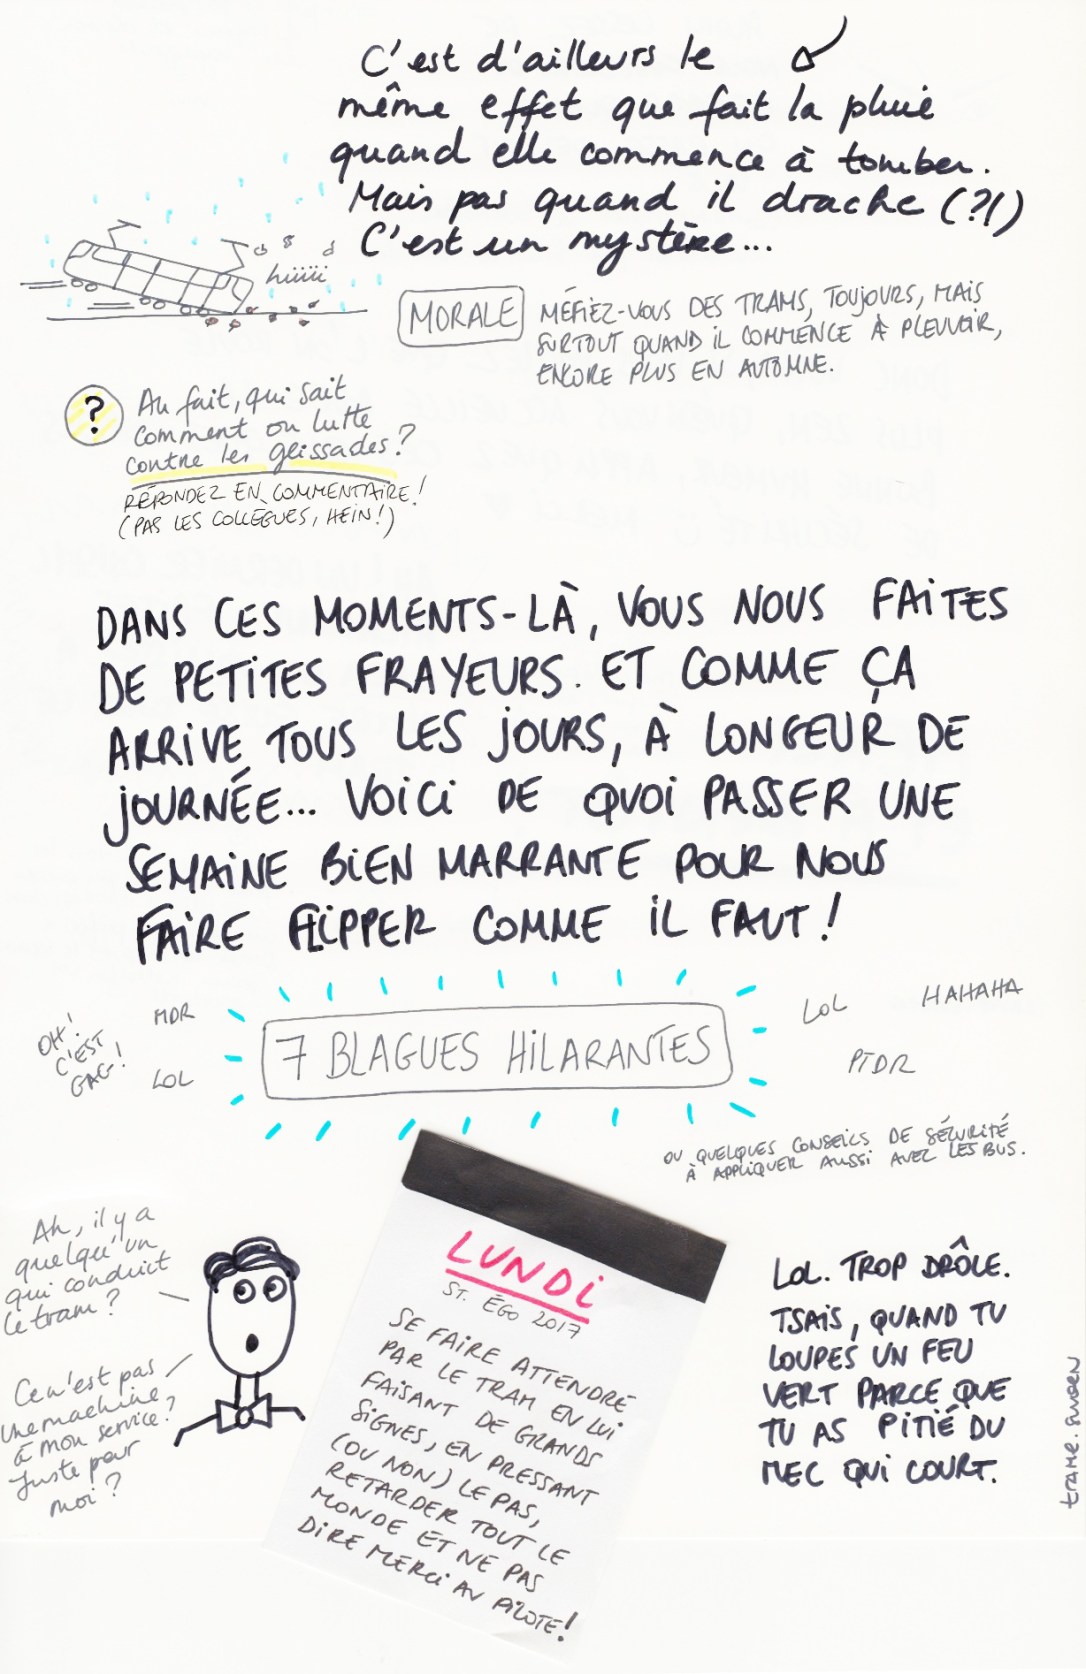 C'est d'ailleurs le
même effet que fait la pluie
quand elle commence à tomber.
Mais pas quand il drache (?!)
C'est un mystère...
hiiiii
MORALE
MÉFIEZ-VOUS DES TRAMS, TOUJOURS, MAIS
SURTOUT QUAND IL COMMENCE À PLEUVOIR,
ENCORE PLUS EN AUTOMNE.
?
Au fait, qui sait
comment on lutte
contre les glissades?
RÉPONDEZ EN COMMENTAIRE!
(PAS LES COLLÈGUES, HEIN!)
DANS CES MOMENTS-LÀ, VOUS NOUS FAITES
DE PETITES FRAYEURS. ET COMME ÇA
ARRIVE TOUS LES JOURS, À LONGEUR DE
JOURNÉE... VOICI DE QUOI PASSER UNE
SEMAINE BIEN MARRANTE POUR NOUS
FAIRE FLIPPER COMME IL FAUT!
OH!
C'EST
GAG!
MDR
LOL
7 BLAGUES HILARANTES
LOL
HAHAHA
PTDR
OU QUELQUES CONSEILS DE SÉCURITÉ
À APPLIQUER AUSSI AVEC LES BUS.
Ah, il y a
quelqu'un
qui conduit
le tram?
Ce n'est pas
une machine
à mon service?
Juste pour
moi?
LUNDI
ST. ÉGO 2017
SE FAIRE ATTENDRE
PAR LE TRAM EN LUI
FAISANT DE GRANDS
SIGNES, EN PRESSANT
(OU NON) LE PAS,
RETARDER TOUT LE
MONDE ET NE PAS
DIRE MERCI AU PILOTE!
LOL. TROP DRÔLE.
TSAIS, QUAND TU
LOUPES UN FEU
VERT PARCE QUE
TU AS PITIÉ DU
MEC QUI COURT.